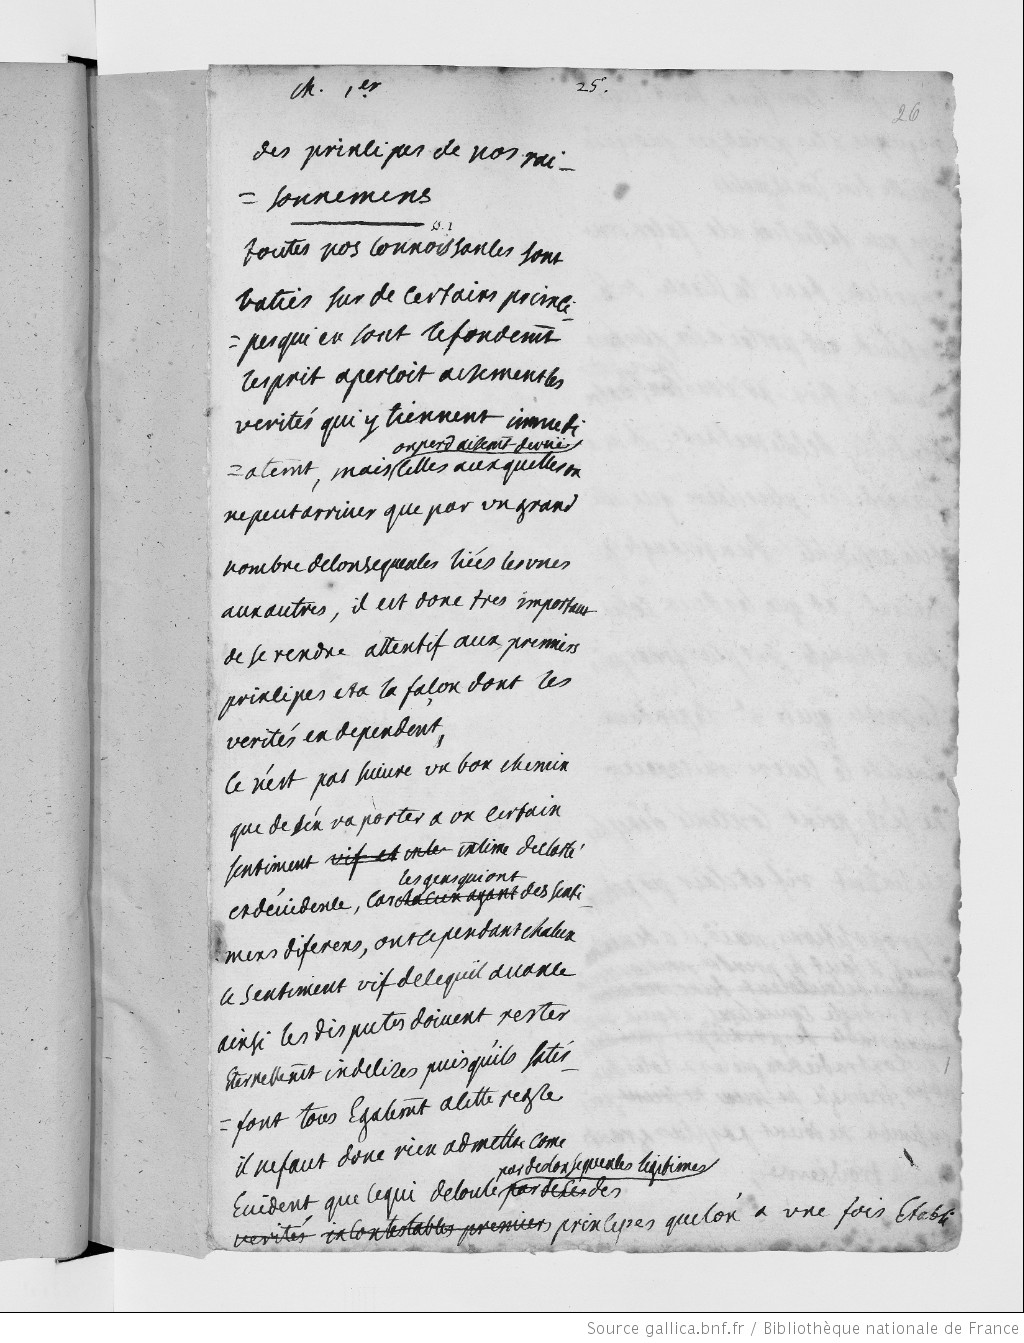 ch. 1er 25.
26
des principes de nos rai-
= sonnemens
§. 1
toutes nos connoissances sont
baties sur de certains princi-
= pes qui en sont le fondemt
l'esprit apercoit aisement les
verités qui y tiennent immedi
on perd aisemt de vuë
= atemt, mais celles auxquelles on
ne peut arriver que par un grand
nombre de consequences liées les unes
aux autres, il est donc tres important
de se rendre attentif aux premiers
principes et a la façon dont les
verités en dependent,
ce n'est pas suivre un bon chemin
que de s'en raporter a un certain
sentiment vif et inter intime de clarté
les gens qui ont
et d'évidence, car chacun ayant des senti-
mens diferens, ont cependant chacun
ce sentiment vif de ce qu'il avance
ainsi les disputes doivent rester
Eternellemt indecises puisqu'ils satis-
= font tous Egalemt a cette regle
il ne faut donc rien admettre come
par des consequences legitimes
Evident que ce qui decoule par de ses des
verités incontestables premiers principes que l'on a une fois Etabli
Source gallica.bnf.fr / Bibliothèque nationale de France